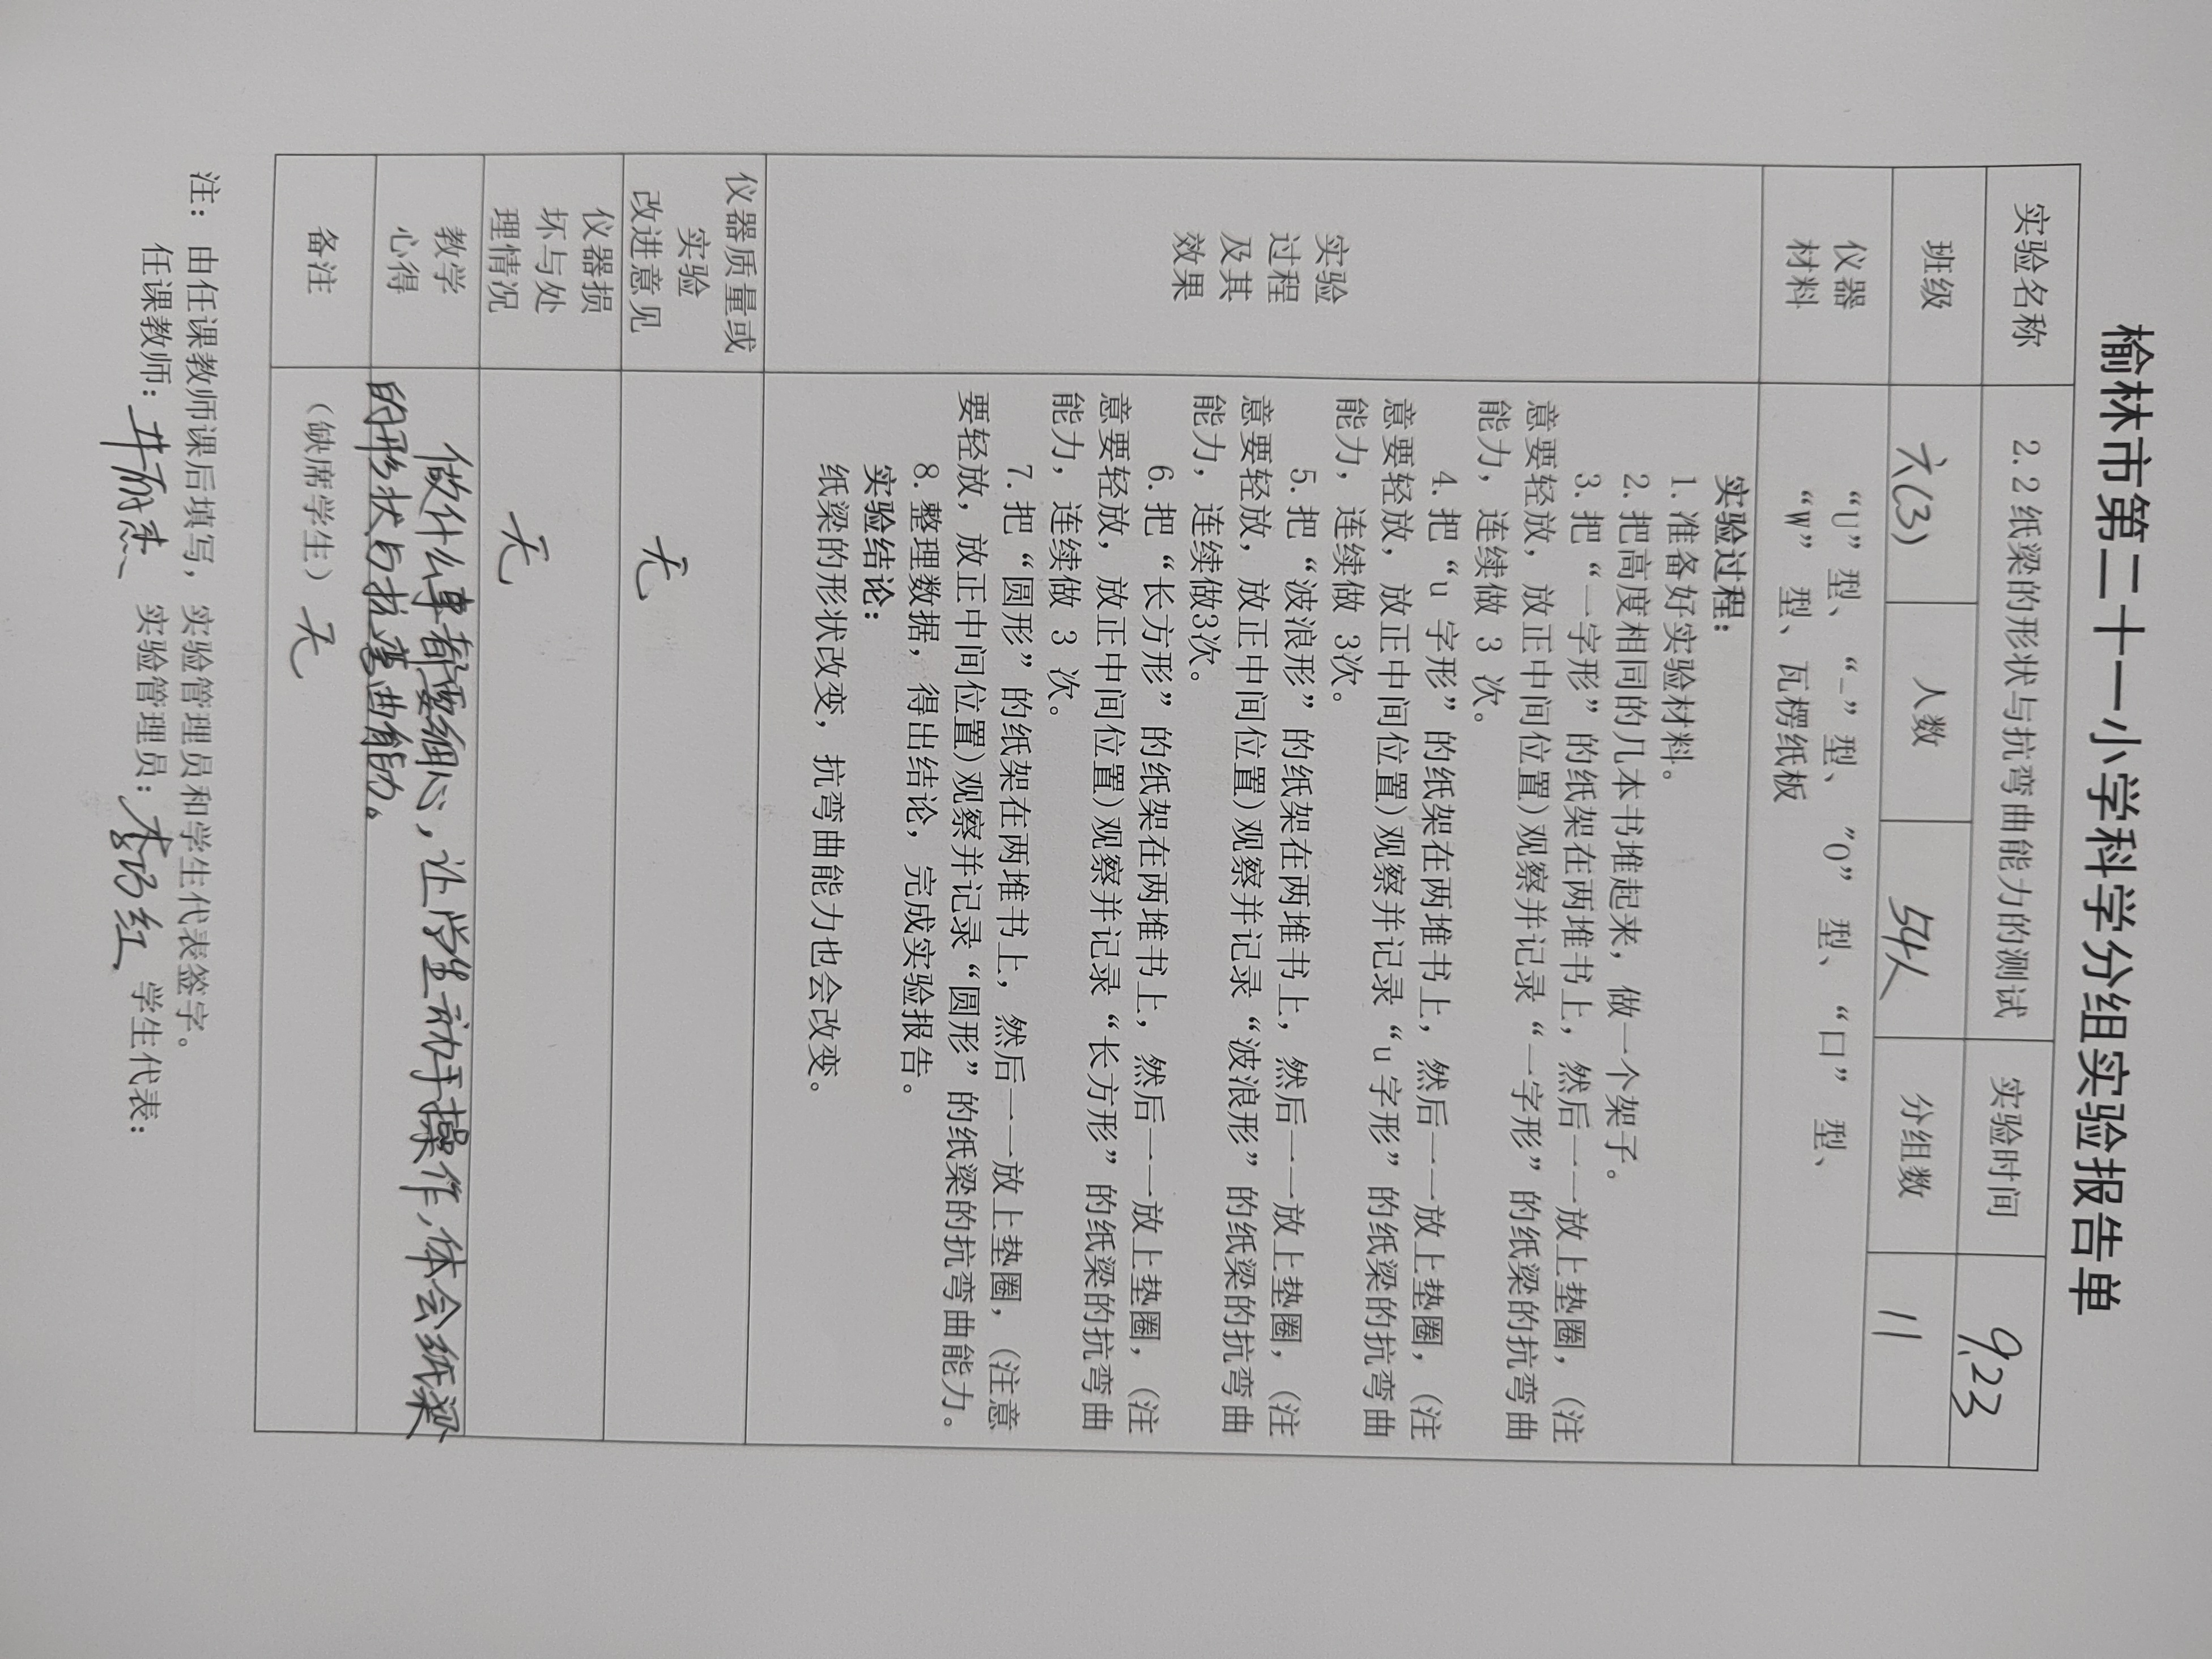 榆林市第二十一小学科学分组实验报告单
实验名称 2.2纸梁的形状与抗弯曲能力的测试 实验时间 9.23
班级 六(3) 人数 54人 分组数 11
仪器 “U”型、“_”型、”O”型、“口”型、
材料 “W”型、瓦楞纸板
实验过程：
1.准备好实验材料。
2.把高度相同的几本书堆起来，做一个架子。
3.把“一字形”的纸架在两堆书上，然后一一放上垫圈，（注
意要轻放，放正中间位置）观察并记录“一字形”的纸梁的抗弯曲
能力，连续做 3 次。
4.把“u 字形”的纸架在两堆书上，然后一一放上垫圈，（注
意要轻放，放正中间位置）观察并记录“u 字形”的纸梁的抗弯曲
能力，连续做 3次。
实验
过程
及其
效果
5.把“波浪形”的纸架在两堆书上，然后一一放上垫圈，（注
意要轻放，放正中间位置）观察并记录“波浪形”的纸梁的抗弯曲
能力，连续做3次。
6.把“长方形”的纸架在两堆书上，然后一一放上垫圈，（注
意要轻放，放正中间位置）观察并记录“长方形”的纸梁的抗弯曲
能力，连续做 3 次。
7.把“圆形”的纸架在两堆书上，然后一一放上垫圈，（注意
要轻放，放正中间位置）观察并记录“圆形”的纸梁的抗弯曲能力。
8.整理数据，得出结论，完成实验报告。
实验结论：
纸梁的形状改变，抗弯曲能力也会改变。
仪器质量或
实验
改进意见
无
仪器损
坏与处
理情况
无
教学
心得
做什么事都要细心，让学生动手操作，体会纸梁
的形状与抗弯曲能力。
备注 （缺席学生）无
注：由任课教师课后填写，实验管理员和学生代表签字。
任课教师： 实验管理员： 学生代表：